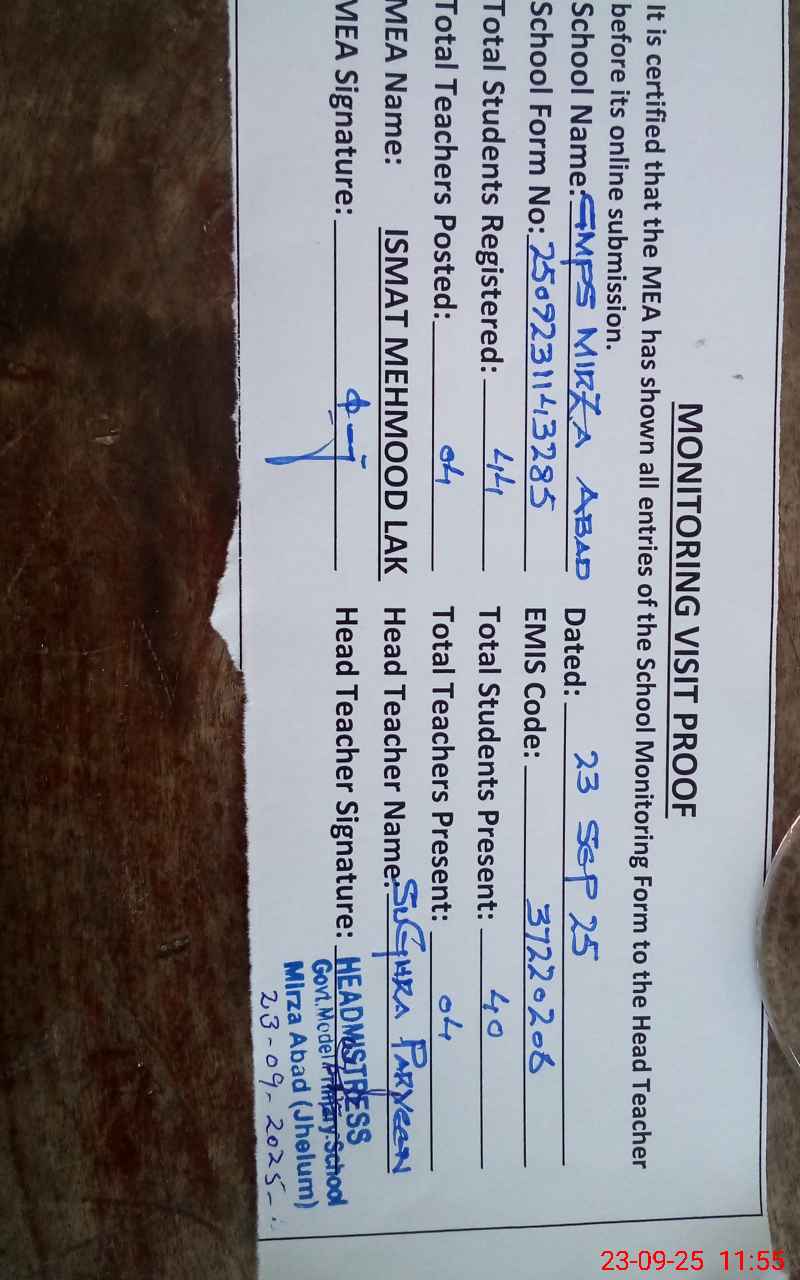 MONITORING VISIT PROOF
It is certified that the MEA has shown all entries of the School Monitoring Form to the Head Teacher
before its online submission.
School Name: GMPS MIRZA ABAD Dated: 23 SEP 25
School Form No: 2509231143285 EMIS Code: 37220206
Total Students Registered: 44 Total Students Present: 40
Total Teachers Posted: 04 Total Teachers Present: 04
MEA Name: ISMAT MEHMOOD LAK Head Teacher Name: SUGHRA PARVEEN
MEA Signature: Head Teacher Signature:
HEADMISTRESS
Govt. Model Primary School
Mirza Abad (Jhelum)
23-09-2025
23-09-25 11:55